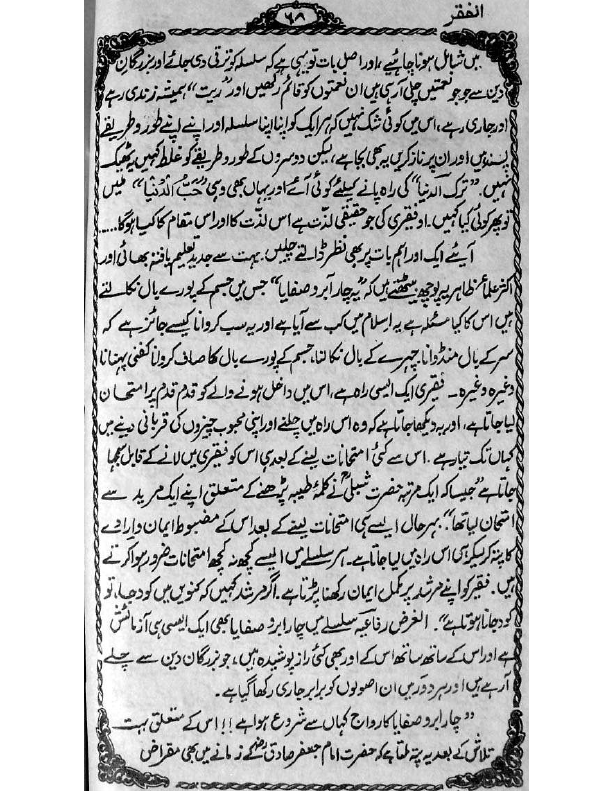 الفقر
۶۸
میں شامل ہونا چاہئیے، اور اصل بات تو یہی ہے کہ سلسلہ کو ترقی دی جائے اور بزرگانِ
دین سے جو جو نعمتیں چلی آرہی ہیں ان نعمتوں کو قائم رکھیں اور "ریت" ہمیشہ زندی رہے
اور جاری رہے، اس میں کوئی شک نہیں کہ ہر ایک کو اپنا اپنا سلسلہ اور اپنے اپنے طور و طریقے
پسند ہیں اور ان پر ناز کریں یہ بھی بجا ہے، لیکن دوسروں کے طور و طریقے کو غلط کہیں یہ ٹھیک
نہیں۔ "ترک الدنیا" کی راہ پانے کیلئے کوئی آئے اور یہاں بھی وہی "حُبّ الدنیا" میں
تو پھر کوئی کیا کہیں۔ اور فقیری کی جو حقیقی لذت ہے اس لذت کا اور اس مقام کا کیا ہوگا.....
آیئے ایک اور اہم بات پر بھی نظر ڈالتے چلیں۔ بہت سے جدید تعلیم یافتہ بھائی اور
اکثر علمائے ظاہر یہ پوچھ بیٹھتے ہیں کہ "یہ چار آبرو صفایا" جس میں جسم کے پورے بال نکالتے
ہیں اس کا کیا مسئلہ ہے یہ اسلام میں کب سے آیا ہے اور یہ سب کروانا کیسے جائز ہے کہ
سر کے بال منڈوانا۔ چہرے کے بال نکالنا، جسم کے پورے بال کا صاف کروانا کفنی پہنانا
وغیرہ وغیرہ ۔ فقیری ایک ایسی راہ ہے، اس میں داخل ہونے والے کو قدم قدم پر امتحان
لیا جاتا ہے، اور یہ دیکھا جاتا ہے کہ وہ اس راہ میں چلنے اور اپنی محبوب چیزوں کی قربانی دینے میں
کہاں تک تیار ہے۔ اس سے کئی امتحانات لینے کے بعد ہی اس کو فقیری میں لانے کے قابل سمجھا
جاتا ہے "جیسا کہ ایک مرتبہ حضرت شبلیؒ نے کلمۂ طیبہ پڑھنے کے متعلق اپنے ایک مرید سے
امتحان لیا تھا"۔ بہرحال ایسے ہی امتحانات لینے کے بعد اس کے مضبوط ایمان و ارادے
کا پتہ کر لیکر ہی اس راہ میں لیا جاتا ہے۔ ہر سلسلے میں ایسے کچھ نہ کچھ امتحانات ضرور ہوا کرتے
ہیں۔ فقیر کو اپنے مرشد پر مکمل ایمان رکھنا پڑتا ہے۔ اگر مرشد کہیں کہ کنویں میں کود جا، تو
کود جانا ہوتا ہے"۔ الغرض رفاعیہ سلسلے میں چار ابرو صفایا بھی ایک ایسی ہی آزمائش
ہے اور اس کے ساتھ ساتھ اس کے اور بھی کئی راز پوشیدہ ہیں، جو بزرگان دین سے چلے
آرہے ہیں اور ہر دور میں ان اصولوں کو برابر جاری رکھا گیا ہے۔
"چار ابرو صفایا کا رواج کہاں سے شروع ہوا ہے !! اس کے متعلق بہت
تلاش کے بعد یہ پتہ ملتا ہے کہ حضرت امام جعفر صادقؓ کے زمانے میں بھی مقراض